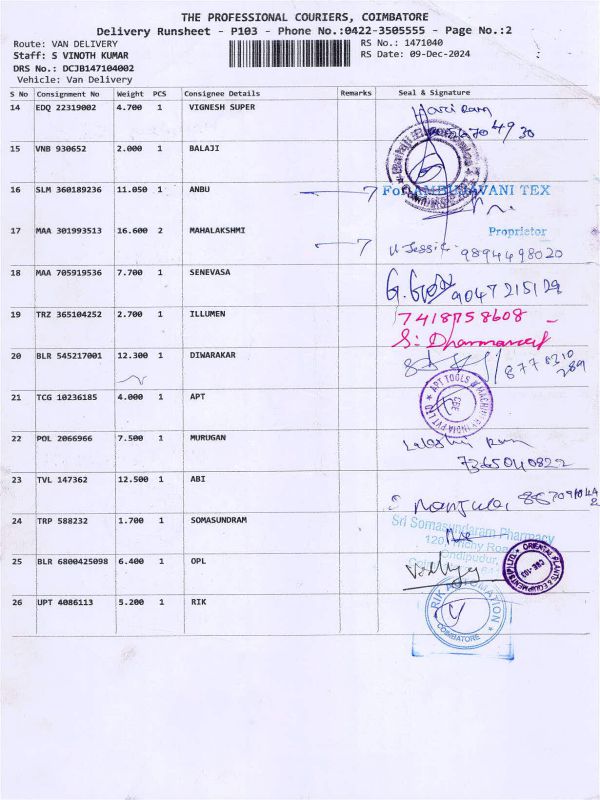 THE PROFESSIONAL COURIERS, COIMBATORE
Delivery Runsheet - P103 - Phone No.:0422-3505555 - Page No.:2
Route: VAN DELIVERY RS No.: 1471040
Staff: S VINOTH KUMAR RS Date: 09-Dec-2024
DRS No.: DCJB147104002
Vehicle: Van Delivery
S No Consignment No Weight PCS Consignee Details Remarks Seal & Signature
14 EDQ 22319002 4.700 1 VIGNESH SUPER
Hari Ram
15 VNB 930652 2.000 1 BALAJI
16 SLM 360189236 11.050 1 ANBU
TEX
17 MAA 301993513 16.600 2 MAHALAKSHMI
Proprietor
9894498020
18 MAA 705919536 7.700 1 SENEVASA
9047215129
19 TRZ 365104252 2.700 1 ILLUMEN
7418758608
20 BLR 545217001 12.300 1 DIWARAKAR
21 TCG 10236185 4.000 1 APT
APT TOOLS & MACHINERY INDIA PVT LTD
CBE
22 POL 2066966 7.500 1 MURUGAN
7365040822
23 TVL 147362 12.500 1 ABI
24 TRP 588232 1.700 1 SOMASUNDRAM
Sri Somasundaram Pharmacy
25 BLR 6800425098 6.400 1 OPL
ORIENTAL PLANTS & EQUIPMENTS (P) LTD.
26 UPT 4086113 5.200 1 RIK
RIK AUTOMATION
COIMBATORE